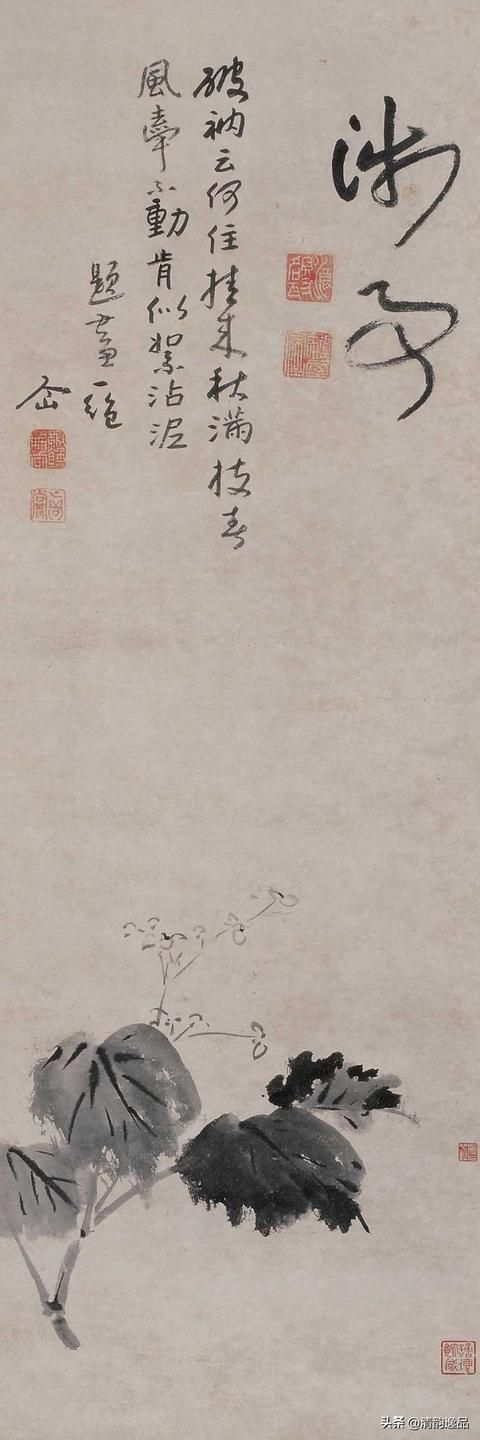 涉事
破衲云何住挂来秋滿枝春
風牽不動肯似絮沾泥
題畫一絶
头条 @清韵逸品